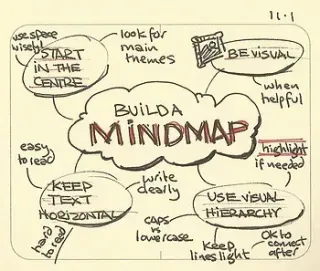 11.1
use space
wisely
START
IN THE
CENTRE
look for
main
themes
BE VISUAL
when
helpful
BUILD A
MINDMAP
highlight
if needed
easy
to read
KEEP
TEXT
HORIZONTAL
hard
to read
write
clearly
USE VISUAL
HIERARCHY
caps
vs
lowercase
keep
lines light
OK to
connect
after